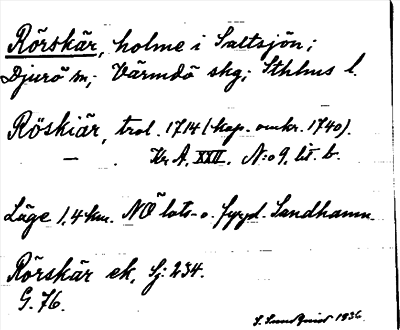 Rörskär, holme i Saltsjön;
Djurö sn; Värmdö skg; Sthlms l.
Röskiär, trol. 1714 (kop. omkr. 1740).
— . Kr A. XXII. N:o 9, lit. b.
Läge 1,4 km. NÖ lots- o. fyrpl. Sandhamn
Rörskär ek. Sj: 234.
G. 76.
S. Sundquist 1936.